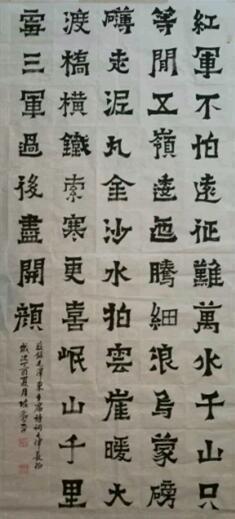 紅軍不怕遠征難萬水千山只
等閒五嶺逶迤騰細浪烏蒙磅
礴走泥丸金沙水拍雲崖暖大
渡橋橫鐵索寒更喜岷山千里
雪三軍過後盡開顏
錄毛澤東主席詩詞七律長征
歲次丁酉夏月